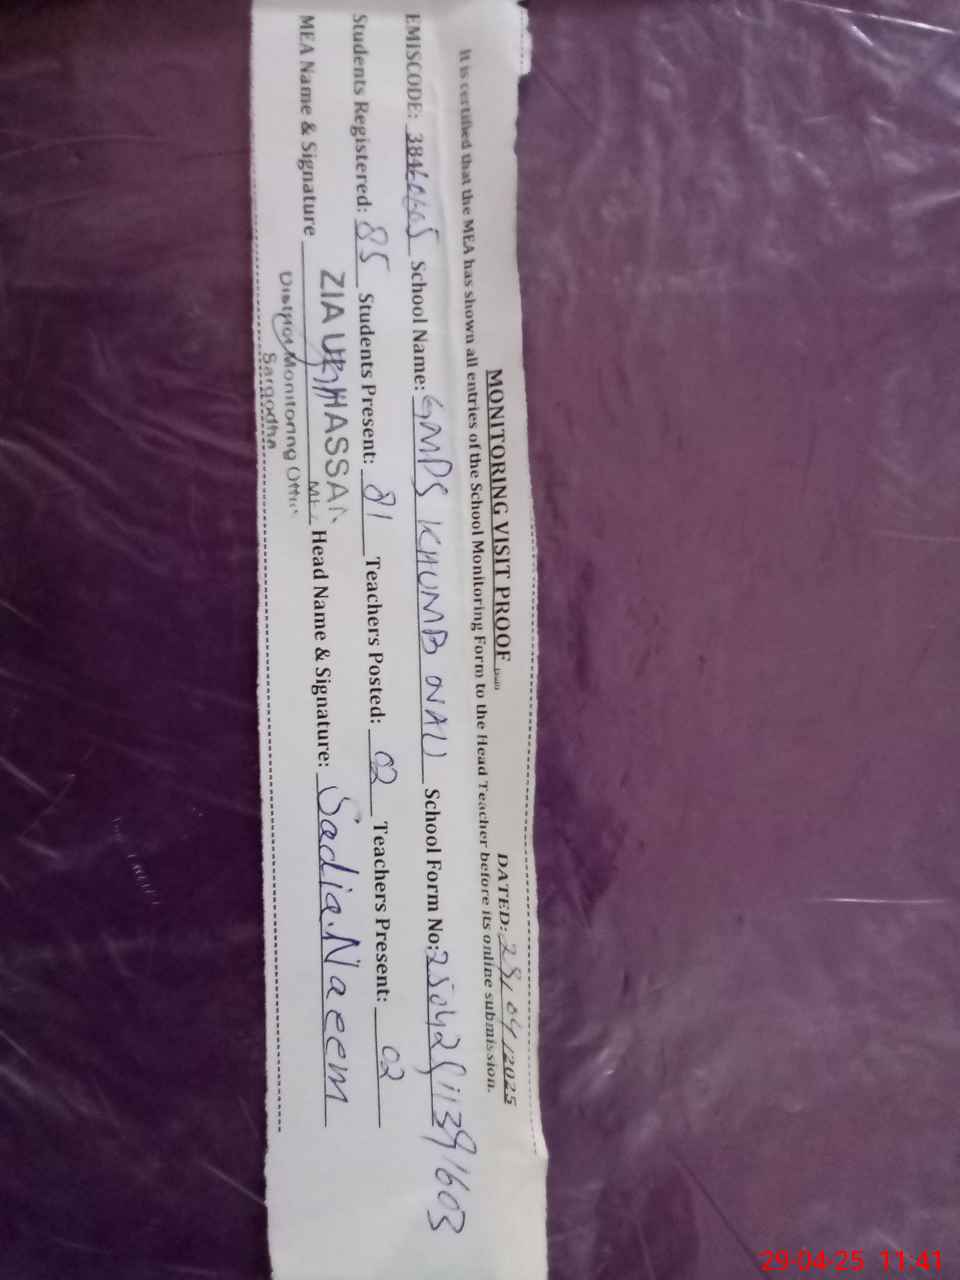 MONITORING VISIT PROOF DATED: 29/04/2025
It is certified that the MEA has shown all entries of the School Monitoring Form to the Head Teacher before its online submission.
EMISCODE: School Name: GMPS KHUMB NAU School Form No:
Students Registered: 85 Students Present: 81 Teachers Posted: 02 Teachers Present: 02
MEA Name & Signature ZIA UL HASSAN Head Name & Signature: Sadia Naeem
MEA
District Monitoring Office
Sargodha
29-04-25 11:41